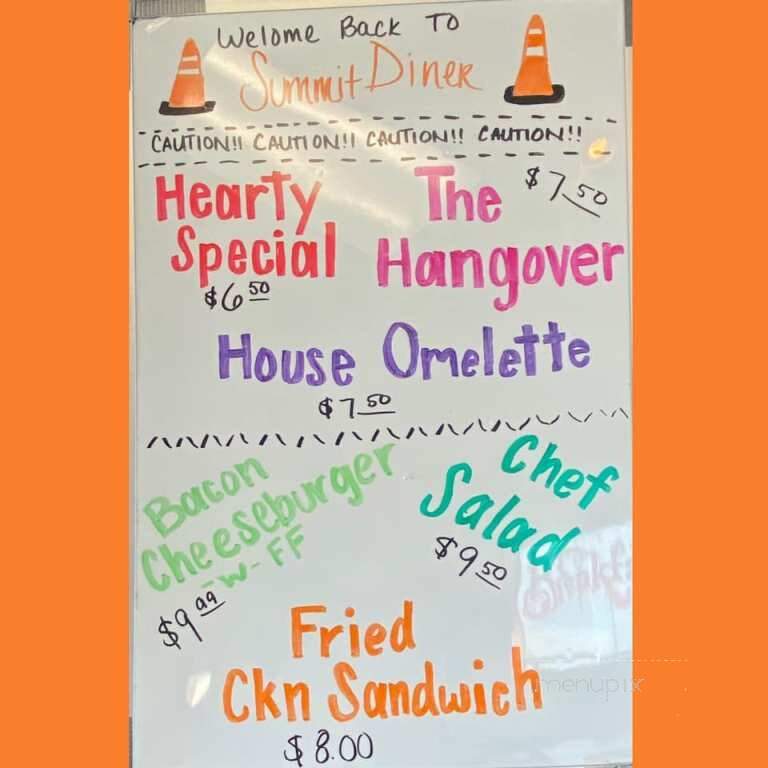 Welome Back To
Summit Diner
CAUTION!! CAUTION!! CAUTION!! CAUTION!!
Hearty
Special
$6.50
The
$7.50
Hangover
House Omelette
$7.50
Bacon
Cheeseburger
-W-FF
$9.99
Chef
Salad
$9.50
Fried
Ckn Sandwich
$8.00
menupix